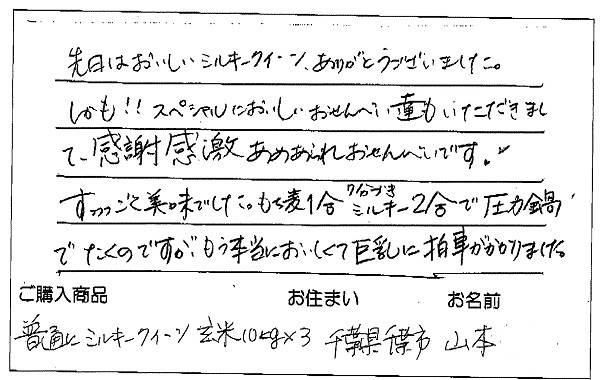 先日はおいしいミルキークイーン、ありがとうございました。
しかも!! スペシャルにおいしいおせんべい重もいただきまし
て、感謝感激あめあられおせんべいです。✓
すっっごく美味でした。もち麦1合 7分づき ミルキー2合で圧力鍋
でたくのですが、もう本当においしくて巨乳に拍車がかかりました。
ご購入商品 お住まい お名前
普通にミルキークイーン玄米10kg×3 千葉県千葉市 山本